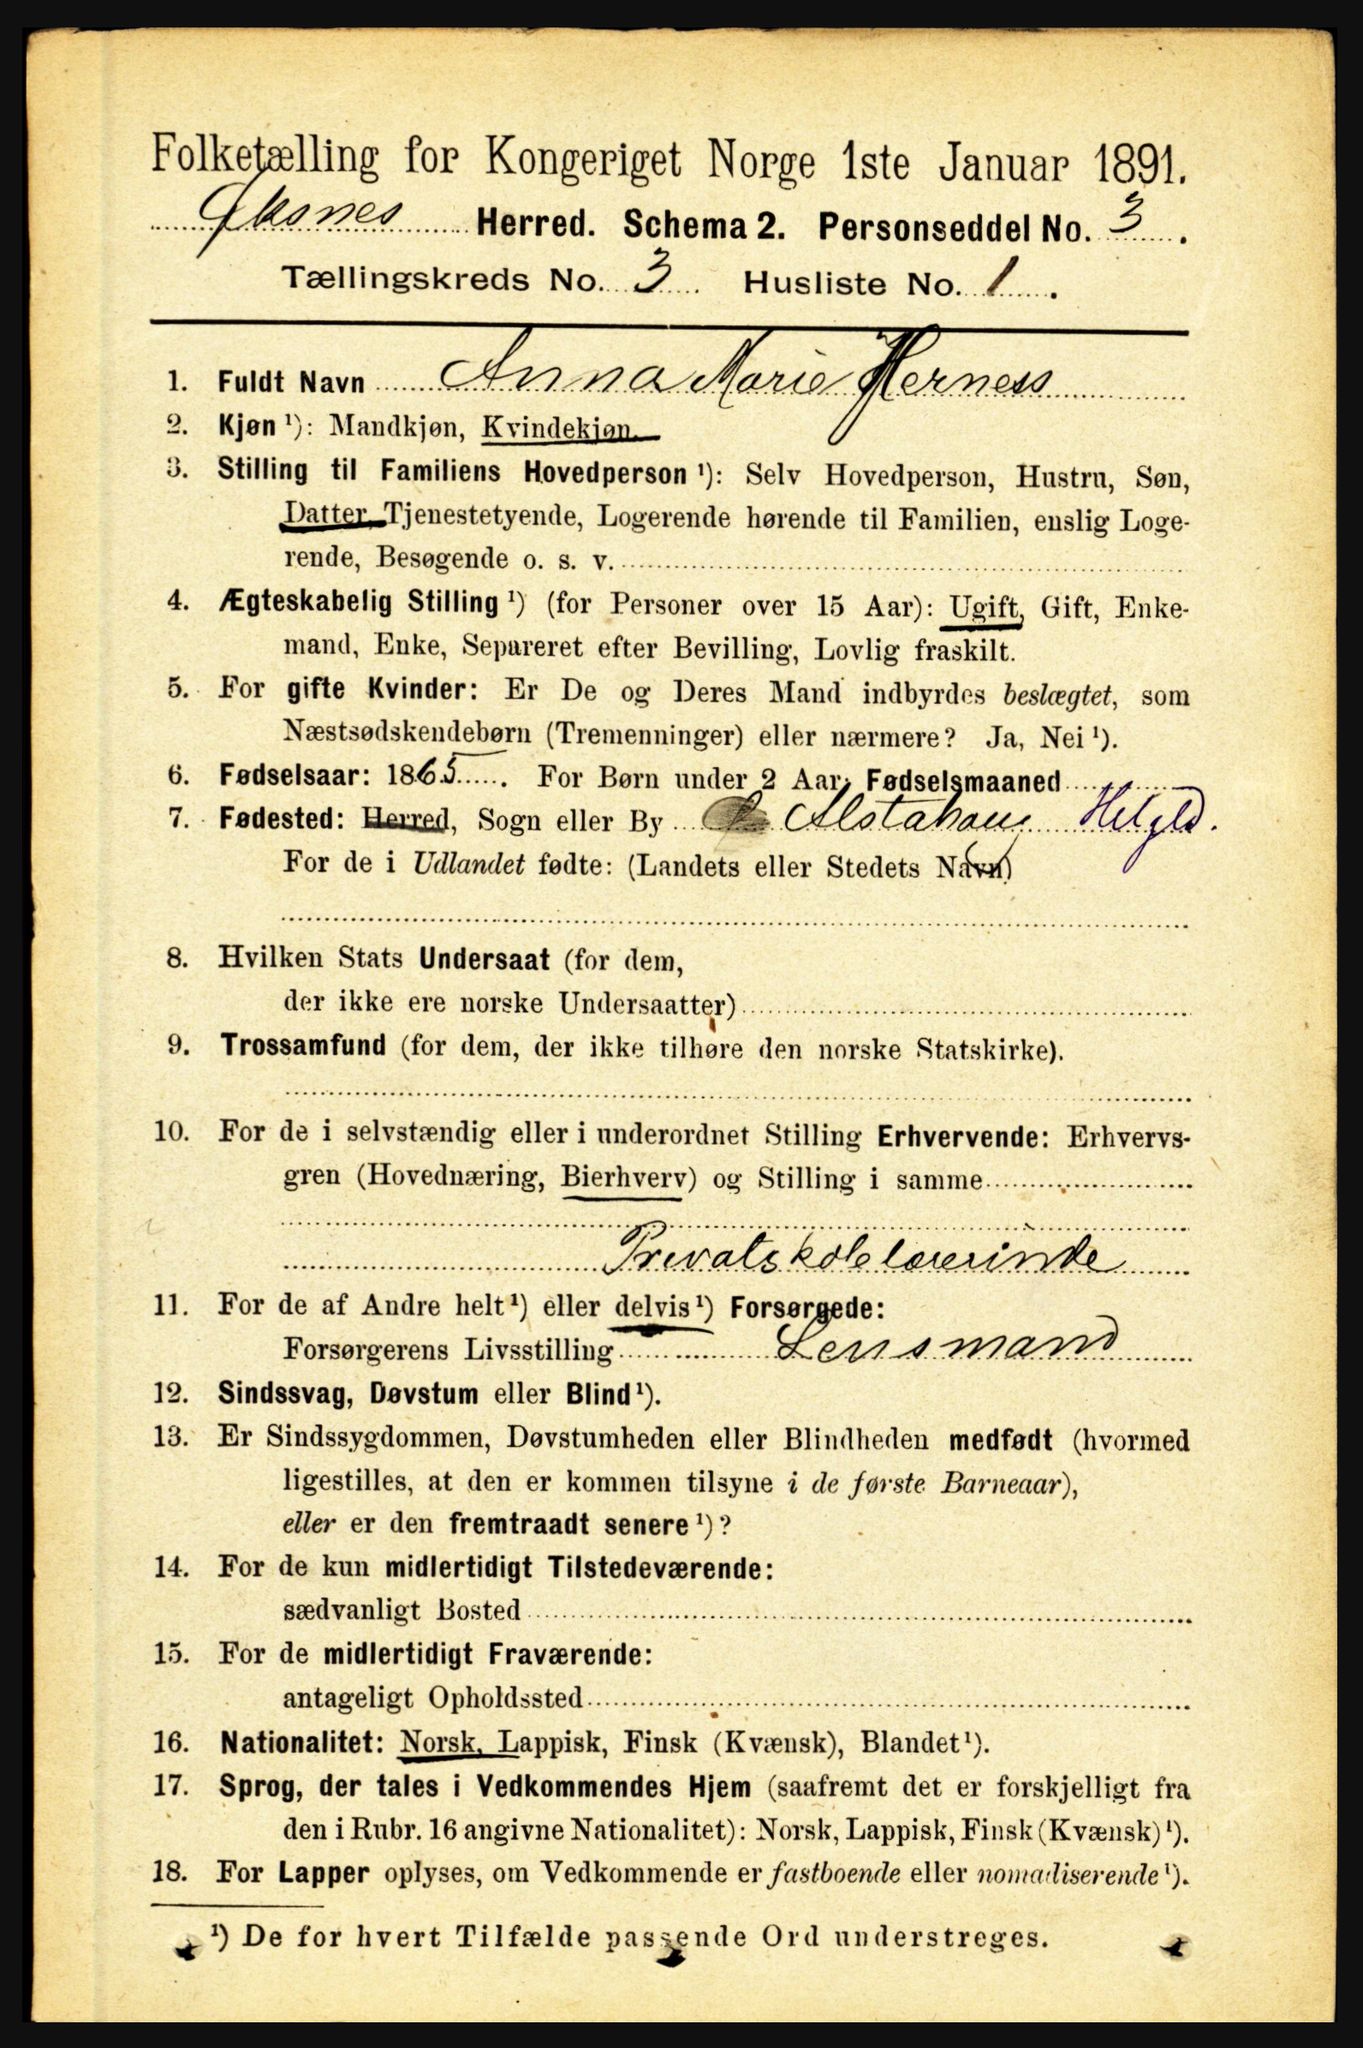 Folketælling for Kongeriget Norge 1ste Januar 1891.
Øksnes Herred. Schema 2. Personseddel No. 3.
Tællingskreds No. 3 Husliste No. 1.
1. Fuldt Navn Anna Marie Herness
2. Kjøn ¹): Mandkjøn, Kvindekjøn.
3. Stilling til Familiens Hovedperson ¹): Selv Hovedperson, Hustru, Søn,
Datter, Tjenestetyende, Logerende hørende til Familien, enslig Loge-
rende, Besøgende o. s. v.
4. Ægteskabelig Stilling ¹) (for Personer over 15 Aar): Ugift, Gift, Enke-
mand, Enke, Separeret efter Bevilling, Lovlig fraskilt.
5. For gifte Kvinder: Er De og Deres Mand indbyrdes beslægtet, som
Næstsødskendebørn (Tremenninger) eller nærmere? Ja, Nei ¹).
6. Fødselsaar: 1865. For Børn under 2 Aar, Fødselsmaaned
7. Fødested: Herred, Sogn eller By Alstahaug Helgld.
For de i Udlandet fødte: (Landets eller Stedets Navn)
8. Hvilken Stats Undersaat (for dem,
der ikke ere norske Undersaatter)
9. Trossamfund (for dem, der ikke tilhøre den norske Statskirke).
10. For de i selvstændig eller i underordnet Stilling Erhvervende: Erhvervs-
gren (Hovednæring, Bierhverv) og Stilling i samme
Privatskolelærerinde
11. For de af Andre helt ¹) eller delvis ¹) Forsørgede:
Forsørgerens Livsstilling Lensmand
12. Sindssvag, Døvstum eller Blind ¹).
13. Er Sindssygdommen, Døvstumheden eller Blindheden medfødt (hvormed
ligestilles, at den er kommen tilsyne i de første Barneaar),
eller er den fremtraadt senere ¹)?
14. For de kun midlertidigt Tilstedeværende:
sædvanligt Bosted
15. For de midlertidigt Fraværende:
antageligt Opholdssted
16. Nationalitet: Norsk, Lappisk, Finsk (Kvænsk), Blandet ¹).
17. Sprog, der tales i Vedkommendes Hjem (saafremt det er forskjelligt fra
den i Rubr. 16 angivne Nationalitet): Norsk, Lappisk, Finsk (Kvænsk) ¹).
18. For Lapper oplyses, om Vedkommende er fastboende eller nomadiserende ¹).
¹) De for hvert Tilfælde passende Ord understreges.